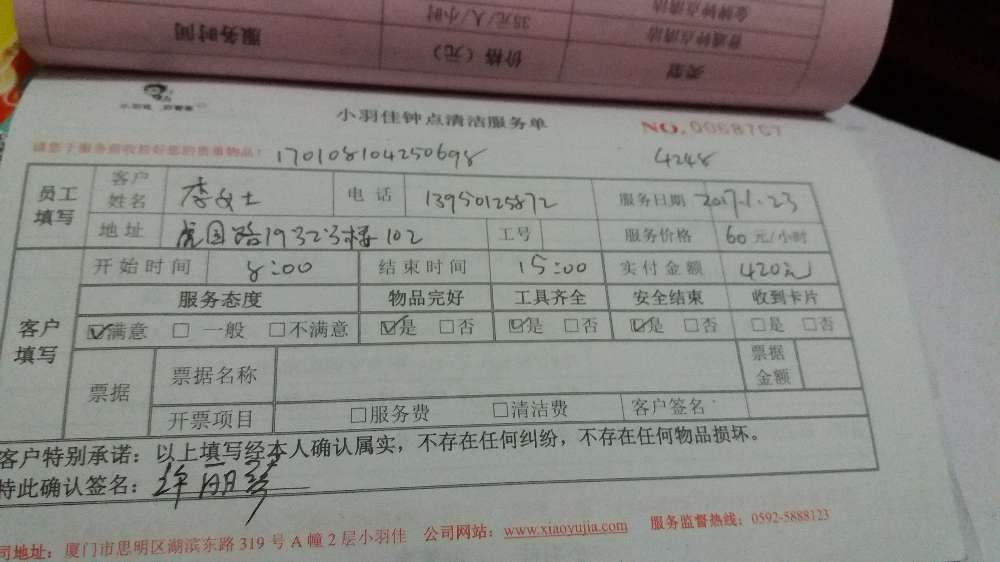 金牌钟点清洁
普通钟点清洁 35元/人/小时
类型 价格（元） 服务时间
小羽佳钟点清洁服务单 NO.0068767
请您于服务前收捡好您的贵重物品！ 170108104250698 4248
员工填写 客户姓名 李女士 电话 13950125872 服务日期 2017.1.23
地址 虎园路19323楼102 工号 服务价格 60元/小时
客户填写 开始时间 8:00 结束时间 15:00 实付金额 420元
服务态度 物品完好 工具齐全 安全结束 收到卡片
☑满意 □一般 □不满意 ☑是 □否 ☑是 □否 ☑是 □否 □是 □否
票据 票据名称 票据金额
开票项目 □服务费 □清洁费 客户签名
客户特别承诺：以上填写经本人确认属实，不存在任何纠纷，不存在任何物品损坏。
特此确认签名：
司地址：厦门市思明区湖滨东路319号A幢2层小羽佳 公司网站：www.xiaoyujia.com 服务监督热线：0592-5888123